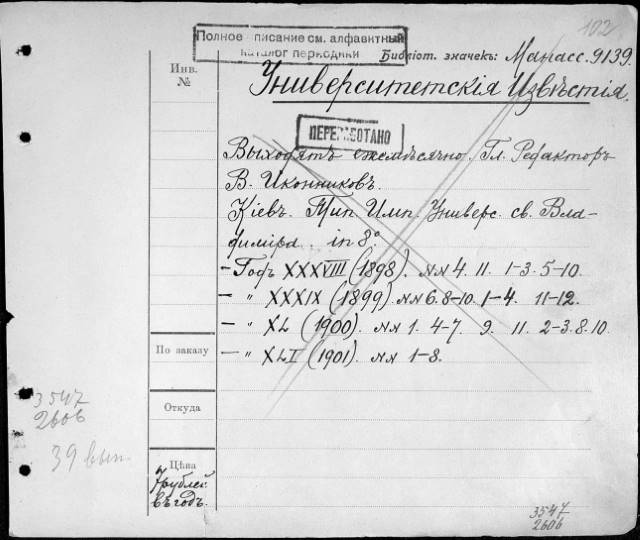 102
Полное описание см. алфавитный
каталог периодики
Библіот. значекъ: Манасс. 9139.
Инв.
№
Университетскія Извѣстія.
ПЕРЕРАБОТАНО
Выходятъ ежемѣсячно. Гл. Редакторъ
В. Иконниковъ.
Кіевъ. Тип. Имп. Универс. св. Вла-
диміра. in 8°.
— Годъ XXXVIII (1898). №№ 4. 11. 1-3. 5-10.
— " XXXIX (1899). №№ 6. 8-10. 1-4. 11-12.
— " XL (1900). №№ 1. 4-7. 9. 11. 2-3. 8. 10.
По заказу
— " XLI (1901). №№ 1-8.
3547
2606
Откуда
39 вып.
Цѣна
7 рублей
въ годъ.
3547
2606